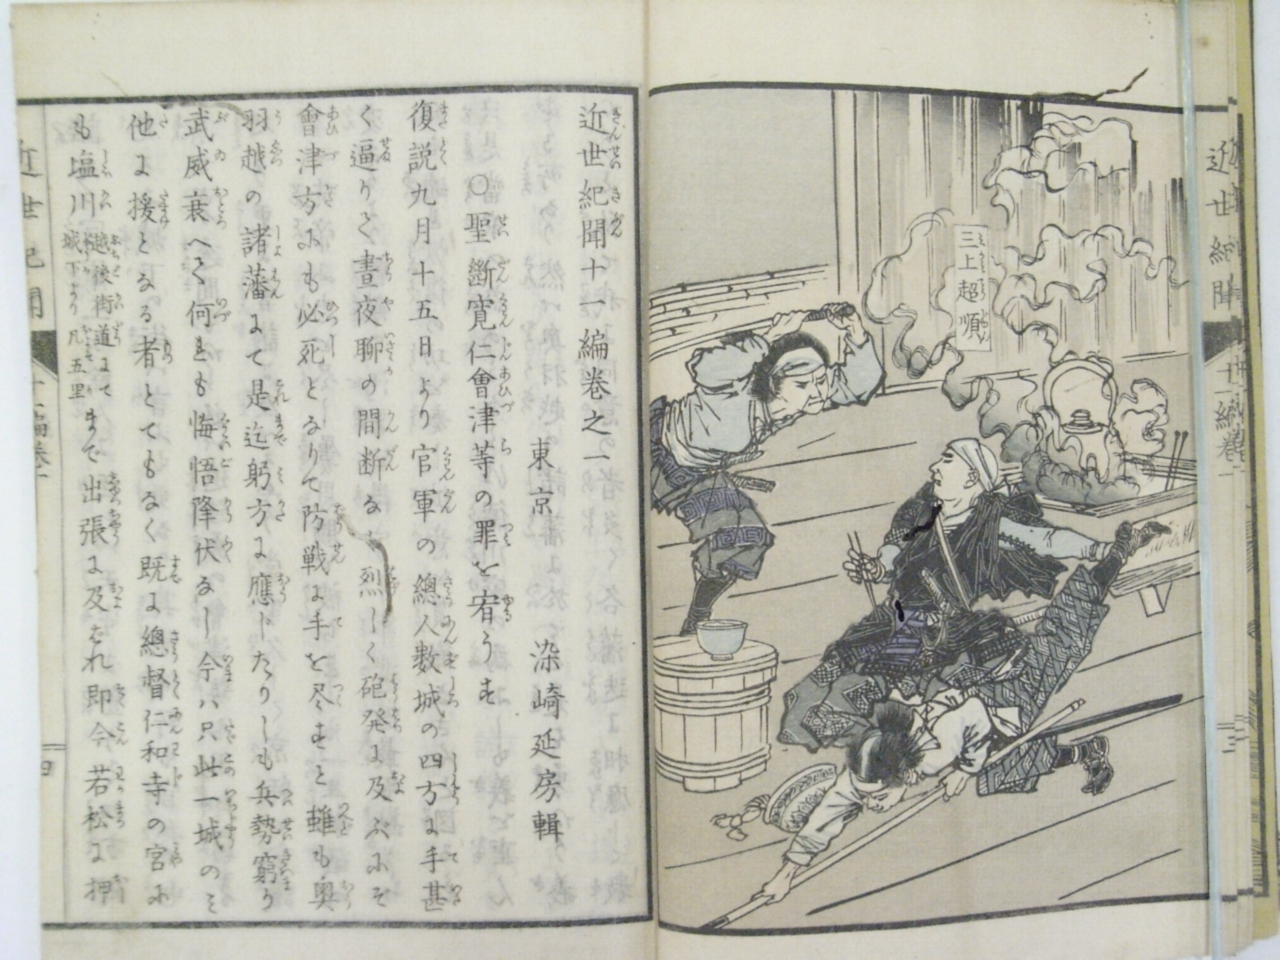 三上超順
近世紀聞十一編巻之一
東京 染崎延房輯
○聖斷寛仁會津等の罪を宥うす
復説九月十五日より官軍の總人數城の四方に手甚
く逼りて晝夜聊の間断なく烈しく砲発に及ぶにぞ
會津方にも必死となりて防戦に手を尽すと雖も奥
羽越の諸藩にて是迄躬方に應じたりしも兵勢窮り
武威衰へて何れも悔悟降伏なし今ハ只此一城のミ
他に援となる者とてもなく既に總督仁和寺の宮に
も塩川越後街道にて城下より凡五里まで出張に及ばれ即今若松に押
近世紀聞
十一編巻一
四
近世紀聞
十一編巻一